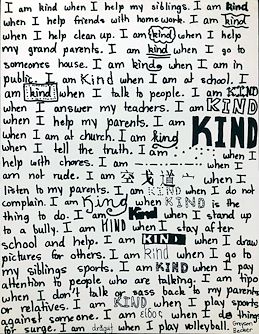 I am kind when I help my siblings. I am kind
when I help friends with homework. I am kind
when I help clean up. I am kind when I help
my grand parents. I am kind when I go to
someones house. I am kind when I am in
public. I am Kind when I am at school. I
am kind when I talk to people. I am KIND
when I answer my teachers. I am KIND
when I help my parents. I am KIND
when I am at church. I am kind
when I tell the truth. I am
help with chores. I am when I
am not rude. I am when I
listen to my parents. I am KIND when I do not
complain. I am King when KIND is the
thing to do. I am Kind when I stand up
to a bully. I am KIND when I stay after
school and help. I am KIND when I draw
pictures for others. I am Kind when I go to
my siblings sports. I am KIND when I pay
attention to people who are talking. I am
when I don't talk or sass back to my parents
or relatives. I am KIND when I play sports
against someone. I am when I do things
for surge. I am when I play volleyball.
Greyson
Becker